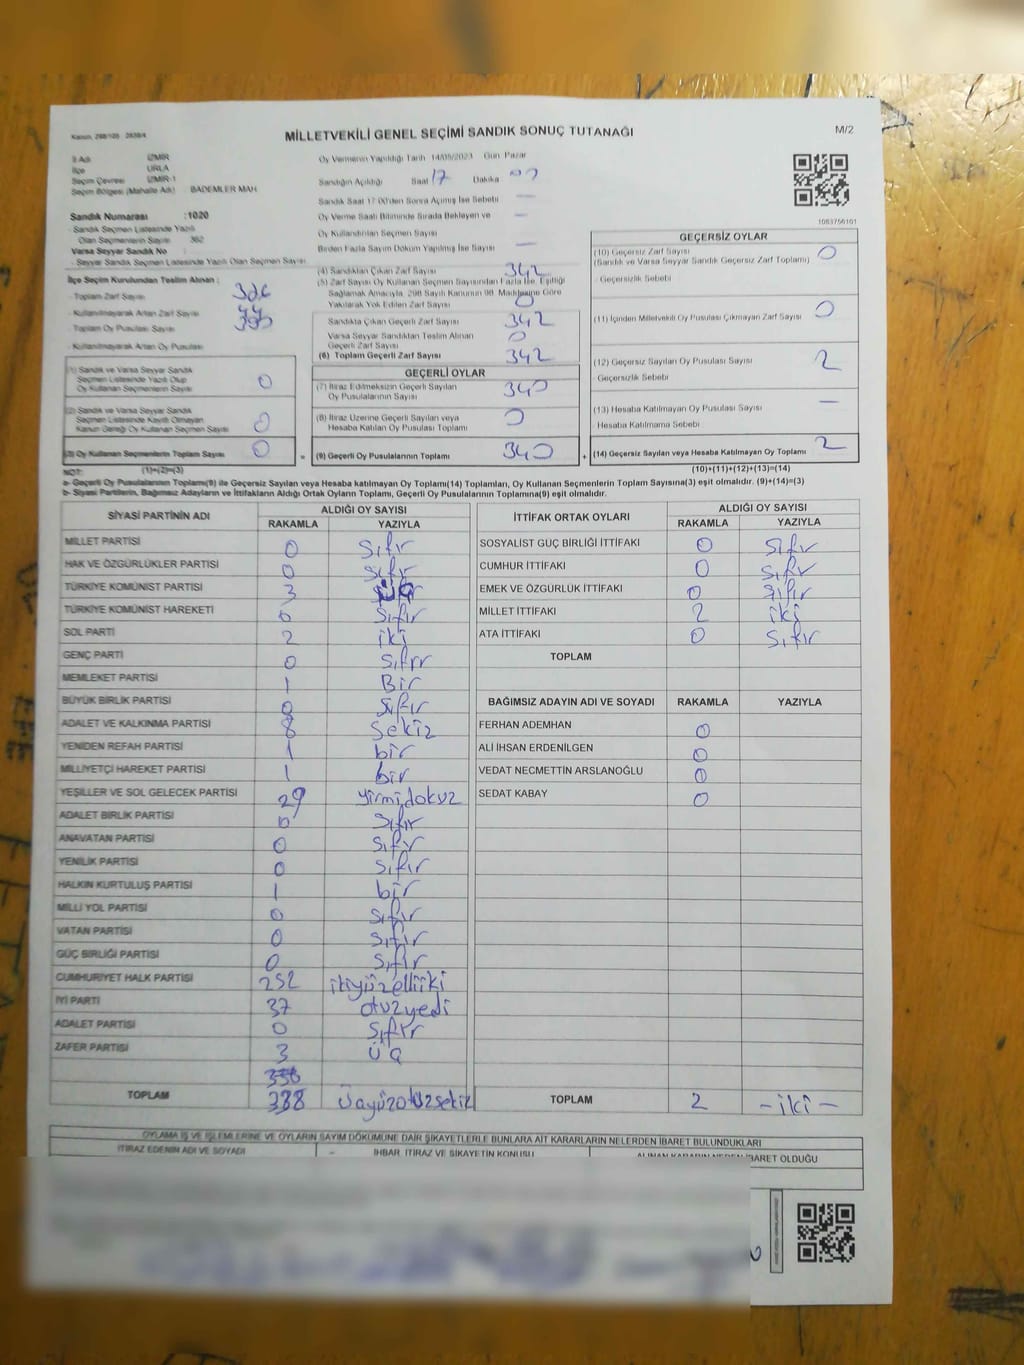 Kanun, 298/105 2839/4
MİLLETVEKİLİ GENEL SEÇİMİ SANDIK SONUÇ TUTANAĞI
M/2
İl Adı İZMİR
İlçe URLA
Seçim Çevresi İZMİR-1
Seçim Bölgesi (Mahalle Adı) BADEMLER MAH
Sandık Numarası :1020
Sandık Seçmen Listesinde Yazılı
Olan Seçmenlerin Sayısı 362
Varsa Seyyar Sandık No
Seyyar Sandık Seçmen Listesinde Yazılı Olan Seçmen Sayısı
İlçe Seçim Kurulundan Teslim Alınan :
Toplam Zarf Sayısı
Kullanılmayarak Artan Zarf Sayısı
Toplam Oy Pusulası Sayısı
Kullanılmayarak Artan Oy Pusulası
(1) Sandık ve Varsa Seyyar Sandık
Seçmen Listesinde Yazılı Olup
Oy Kullanan Seçmenlerin Sayısı 0
(2) Sandık ve Varsa Seyyar Sandık
Seçmen Listesinde Kayıtlı Olmayan
Kanun Gereği Oy Kullanan Seçmen Sayısı 0
(3) Oy Kullanan Seçmenlerin Toplam Sayısı 0
Oy Vermenin Yapıldığı Tarih 14/05/2023 Gün Pazar
Sandığın Açıldığı Saat 17 Dakika
Sandık Saat 17:00'den Sonra Açılmış İse Sebebi —
Oy Verme Saati Bitiminde Sırada Bekleyen ve
Oy Kullandırılan Seçmen Sayısı —
Birden Fazla Sayım Döküm Yapılmış İse Sayısı —
(4) Sandıktan Çıkan Zarf Sayısı 342
(5) Zarf Sayısı Oy Kullanan Seçmen Sayısından Fazla İse, Eşitliği
Sağlamak Amacıyla, 298 Sayılı Kanunun 98. Maddesine Göre
Yakılarak Yok Edilen Zarf Sayısı 0
Sandıkta Çıkan Geçerli Zarf Sayısı 342
Varsa Seyyar Sandıktan Teslim Alınan
Geçerli Zarf Sayısı 0
(6) Toplam Geçerli Zarf Sayısı 342
GEÇERLİ OYLAR
(7) İtiraz Edilmeksizin Geçerli Sayılan
Oy Pusulalarının Sayısı 340
(8) İtiraz Üzerine Geçerli Sayılan veya
Hesaba Katılan Oy Pusulası Toplamı 0
= (9) Geçerli Oy Pusulalarının Toplamı 340 +
1083756101
GEÇERSİZ OYLAR
(10) Geçersiz Zarf Sayısı 0
(Sandık ve Varsa Seyyar Sandık Geçersiz Zarf Toplamı)
Geçersizlik Sebebi
(11) İçinden Milletvekili Oy Pusulası Çıkmayan Zarf Sayısı 0
(12) Geçersiz Sayılan Oy Pusulası Sayısı 2
Geçersizlik Sebebi
(13) Hesaba Katılmayan Oy Pusulası Sayısı —
Hesaba Katılmama Sebebi
(14) Geçersiz Sayılan veya Hesaba Katılmayan Oy Toplamı 2
NOT: (1)+(2)=(3) (10)+(11)+(12)+(13)=(14)
a- Geçerli Oy Pusulalarının Toplamı(9) ile Geçersiz Sayılan veya Hesaba Katılmayan Oy Toplamı(14) Toplamları, Oy Kullanan Seçmenlerin Toplam Sayısına(3) eşit olmalıdır. (9)+(14)=(3)
b- Siyasi Partilerin, Bağımsız Adayların ve İttifakların Aldığı Ortak Oyların Toplamı, Geçerli Oy Pusulalarının Toplamına(9) eşit olmalıdır.
SİYASİ PARTİNİN ADI ALDIĞI OY SAYISI
RAKAMLA YAZIYLA
MİLLET PARTİSİ 0 Sıfır
HAK VE ÖZGÜRLÜKLER PARTİSİ 0 Sıfır
TÜRKİYE KOMÜNİST PARTİSİ 3
TÜRKİYE KOMÜNİST HAREKETİ 0 Sıfır
SOL PARTİ 2 iki
GENÇ PARTİ 0 Sıfır
MEMLEKET PARTİSİ 1 Bir
BÜYÜK BİRLİK PARTİSİ 0 Sıfır
ADALET VE KALKINMA PARTİSİ 8 Sekiz
YENİDEN REFAH PARTİSİ 1 bir
MİLLİYETÇİ HAREKET PARTİSİ 1 bir
YEŞİLLER VE SOL GELECEK PARTİSİ 29 yirmidokuz
ADALET BİRLİK PARTİSİ 0 Sıfır
ANAVATAN PARTİSİ 0 Sıfır
YENİLİK PARTİSİ 0 Sıfır
HALKIN KURTULUŞ PARTİSİ 1 bir
MİLLİ YOL PARTİSİ 0 Sıfır
VATAN PARTİSİ 0 Sıfır
GÜÇ BİRLİĞİ PARTİSİ 0 Sıfır
CUMHURİYET HALK PARTİSİ 252 ikiyüzelliiki
İYİ PARTİ 37 otuzyedi
ADALET PARTİSİ 0 Sıfır
ZAFER PARTİSİ 3 üç
TOPLAM 338 üçyüzotuzsekiz
İTTİFAK ORTAK OYLARI ALDIĞI OY SAYISI
RAKAMLA YAZIYLA
SOSYALİST GÜÇ BİRLİĞİ İTTİFAKI 0 Sıfır
CUMHUR İTTİFAKI 0 Sıfır
EMEK VE ÖZGÜRLÜK İTTİFAKI 0 Sıfır
MİLLET İTTİFAKI 2 iki
ATA İTTİFAKI 0 Sıfır
TOPLAM
BAĞIMSIZ ADAYIN ADI VE SOYADI RAKAMLA YAZIYLA
FERHAN ADEMHAN 0
ALİ İHSAN ERDENİLGEN 0
VEDAT NECMETTİN ARSLANOĞLU 0
SEDAT KABAY 0
TOPLAM 2 -iki-
OYLAMA İŞ VE İŞLEMLERİNE VE OYLARIN SAYIM DÖKÜMÜNE DAİR ŞİKAYETLERLE BUNLARA AİT KARARLARIN NELERDEN İBARET BULUNDUKLARI
İTİRAZ EDENİN ADI VE SOYADI İHBAR, İTİRAZ VE ŞİKAYETİN KONUSU ALINAN KARARIN NEDEN İBARET OLDUĞU